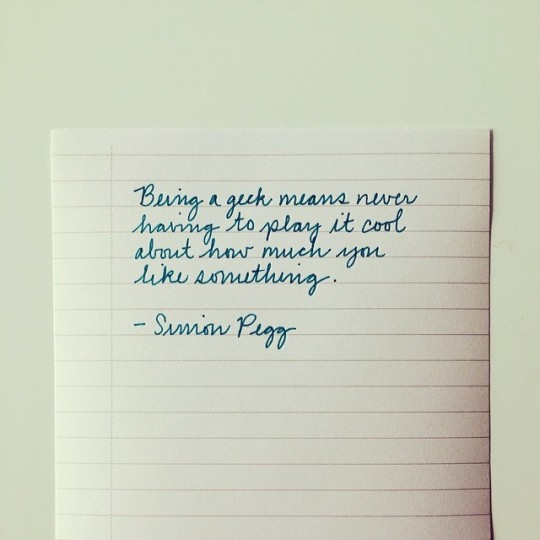 Being a geek means never
having to play it cool
about how much you
like something.
- Simon Pegg